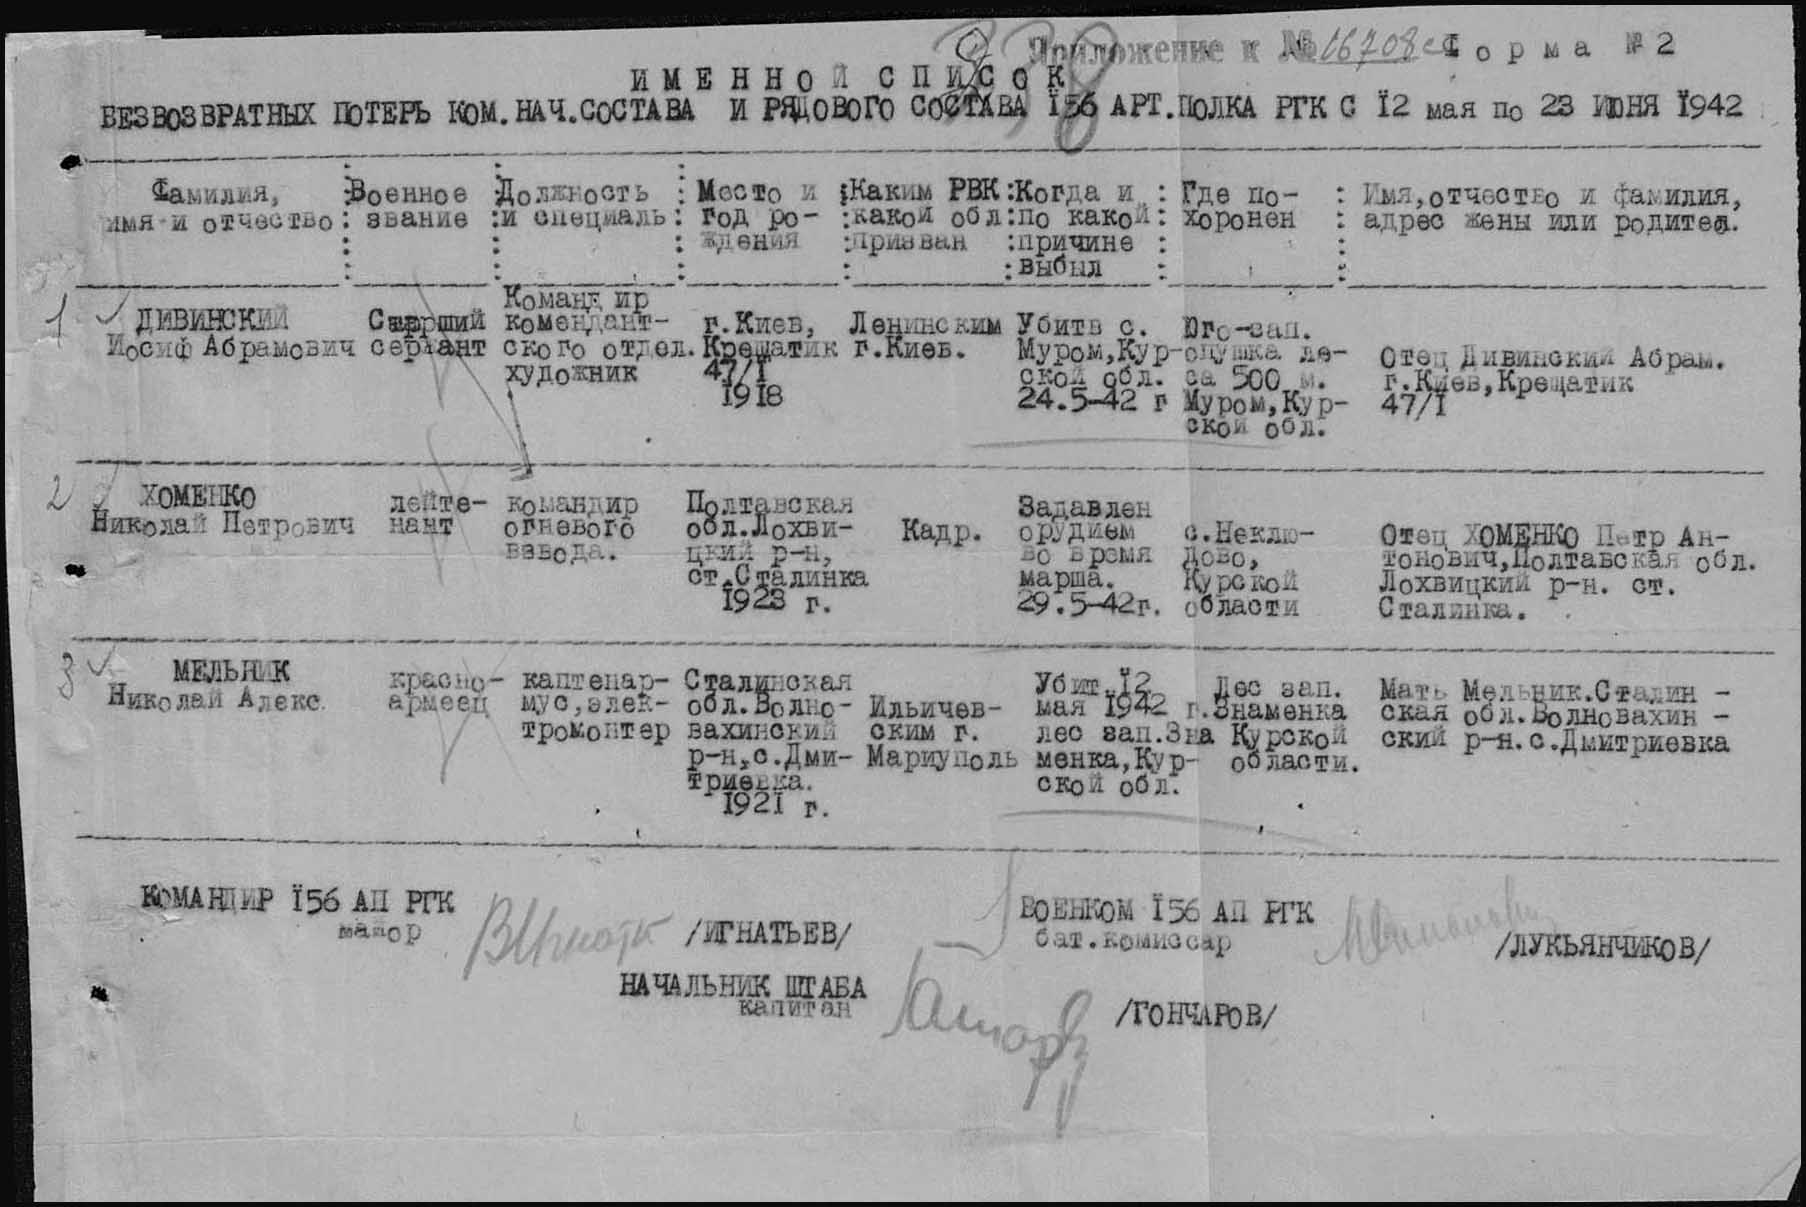 338
Приложение к № 16708с Форма № 2
ИМЕННОЙ СПИСОК
БЕЗВОЗВРАТНЫХ ПОТЕРЬ КОМ.НАЧ.СОСТАВА И РЯДОВОГО СОСТАВА Ї56 АРТ.ПОЛКА РГК С Ї2 мая по 23 ИЮНЯ Ї942
Фамилия, :Военное :Должность : Место и :Каким РВК:Когда и : Где по- : Имя,отчество и фамилия,
имя и отчество: звание :и специаль: год ро- :какой обл:по какой: хоронен : адрес жены или родител.
: : : ждения :призван :причине : :
: : : : :выбыл : :
1 ДИВИНСКИЙ
Иосиф Абрамович
Старший
сержант
Командир
комендант-
ского отдел.
художник
г.Киев,
Крещатик
47/Ї
19Ї8
Ленинским
г.Киев.
Убитв с.
Муром,Кур-
ской обл.
24.5-42 г
Юго-зап.
опушка ле-
са 500 м.
Муром,Кур-
ской обл.
Отец Дивинский Абрам.
г.Киев,Крещатик
47/Ї
2 ХОМЕНКО
Николай Петрович
лейте-
нант
командир
огневого
взвода.
Полтавская
обл.Лохви-
цкий р-н,
ст.Сталинка
Ї923 г.
Кадр.
Задавлен
орудием
во время
марша.
29.5-42г.
с.Неклю-
дово,
Курской
области
Отец ХОМЕНКО Петр Ан-
тонович,Полтавская обл.
Лохвицкий р-н. ст.
Сталинка.
3 МЕЛЬНИК
Николай Алекс.
красно-
армеец
каптенар-
мус,элек-
тромонтер
Сталинская
обл.Волно-
вахинский
р-н,с.Дми-
триевка.
Ї92Ї г.
Ильичев-
ским г.
Мариуполь
Убит Ї2
мая Ї942 г.
лес зап.Зна
менка,Кур-
ской обл.
Лес зап.
Знаменка
Курской
области.
Мать Мельник.Сталин -
ская обл.Волновахин -
ский р-н.с.Дмитриевка
КОМАНДИР Ї56 АП РГК
майор /ИГНАТЬЕВ/
ВОЕНКОМ Ї56 АП РГК
бат.комиссар /ЛУКЬЯНЧИКОВ/
НАЧАЛЬНИК ШТАБА
капитан /ГОНЧАРОВ/